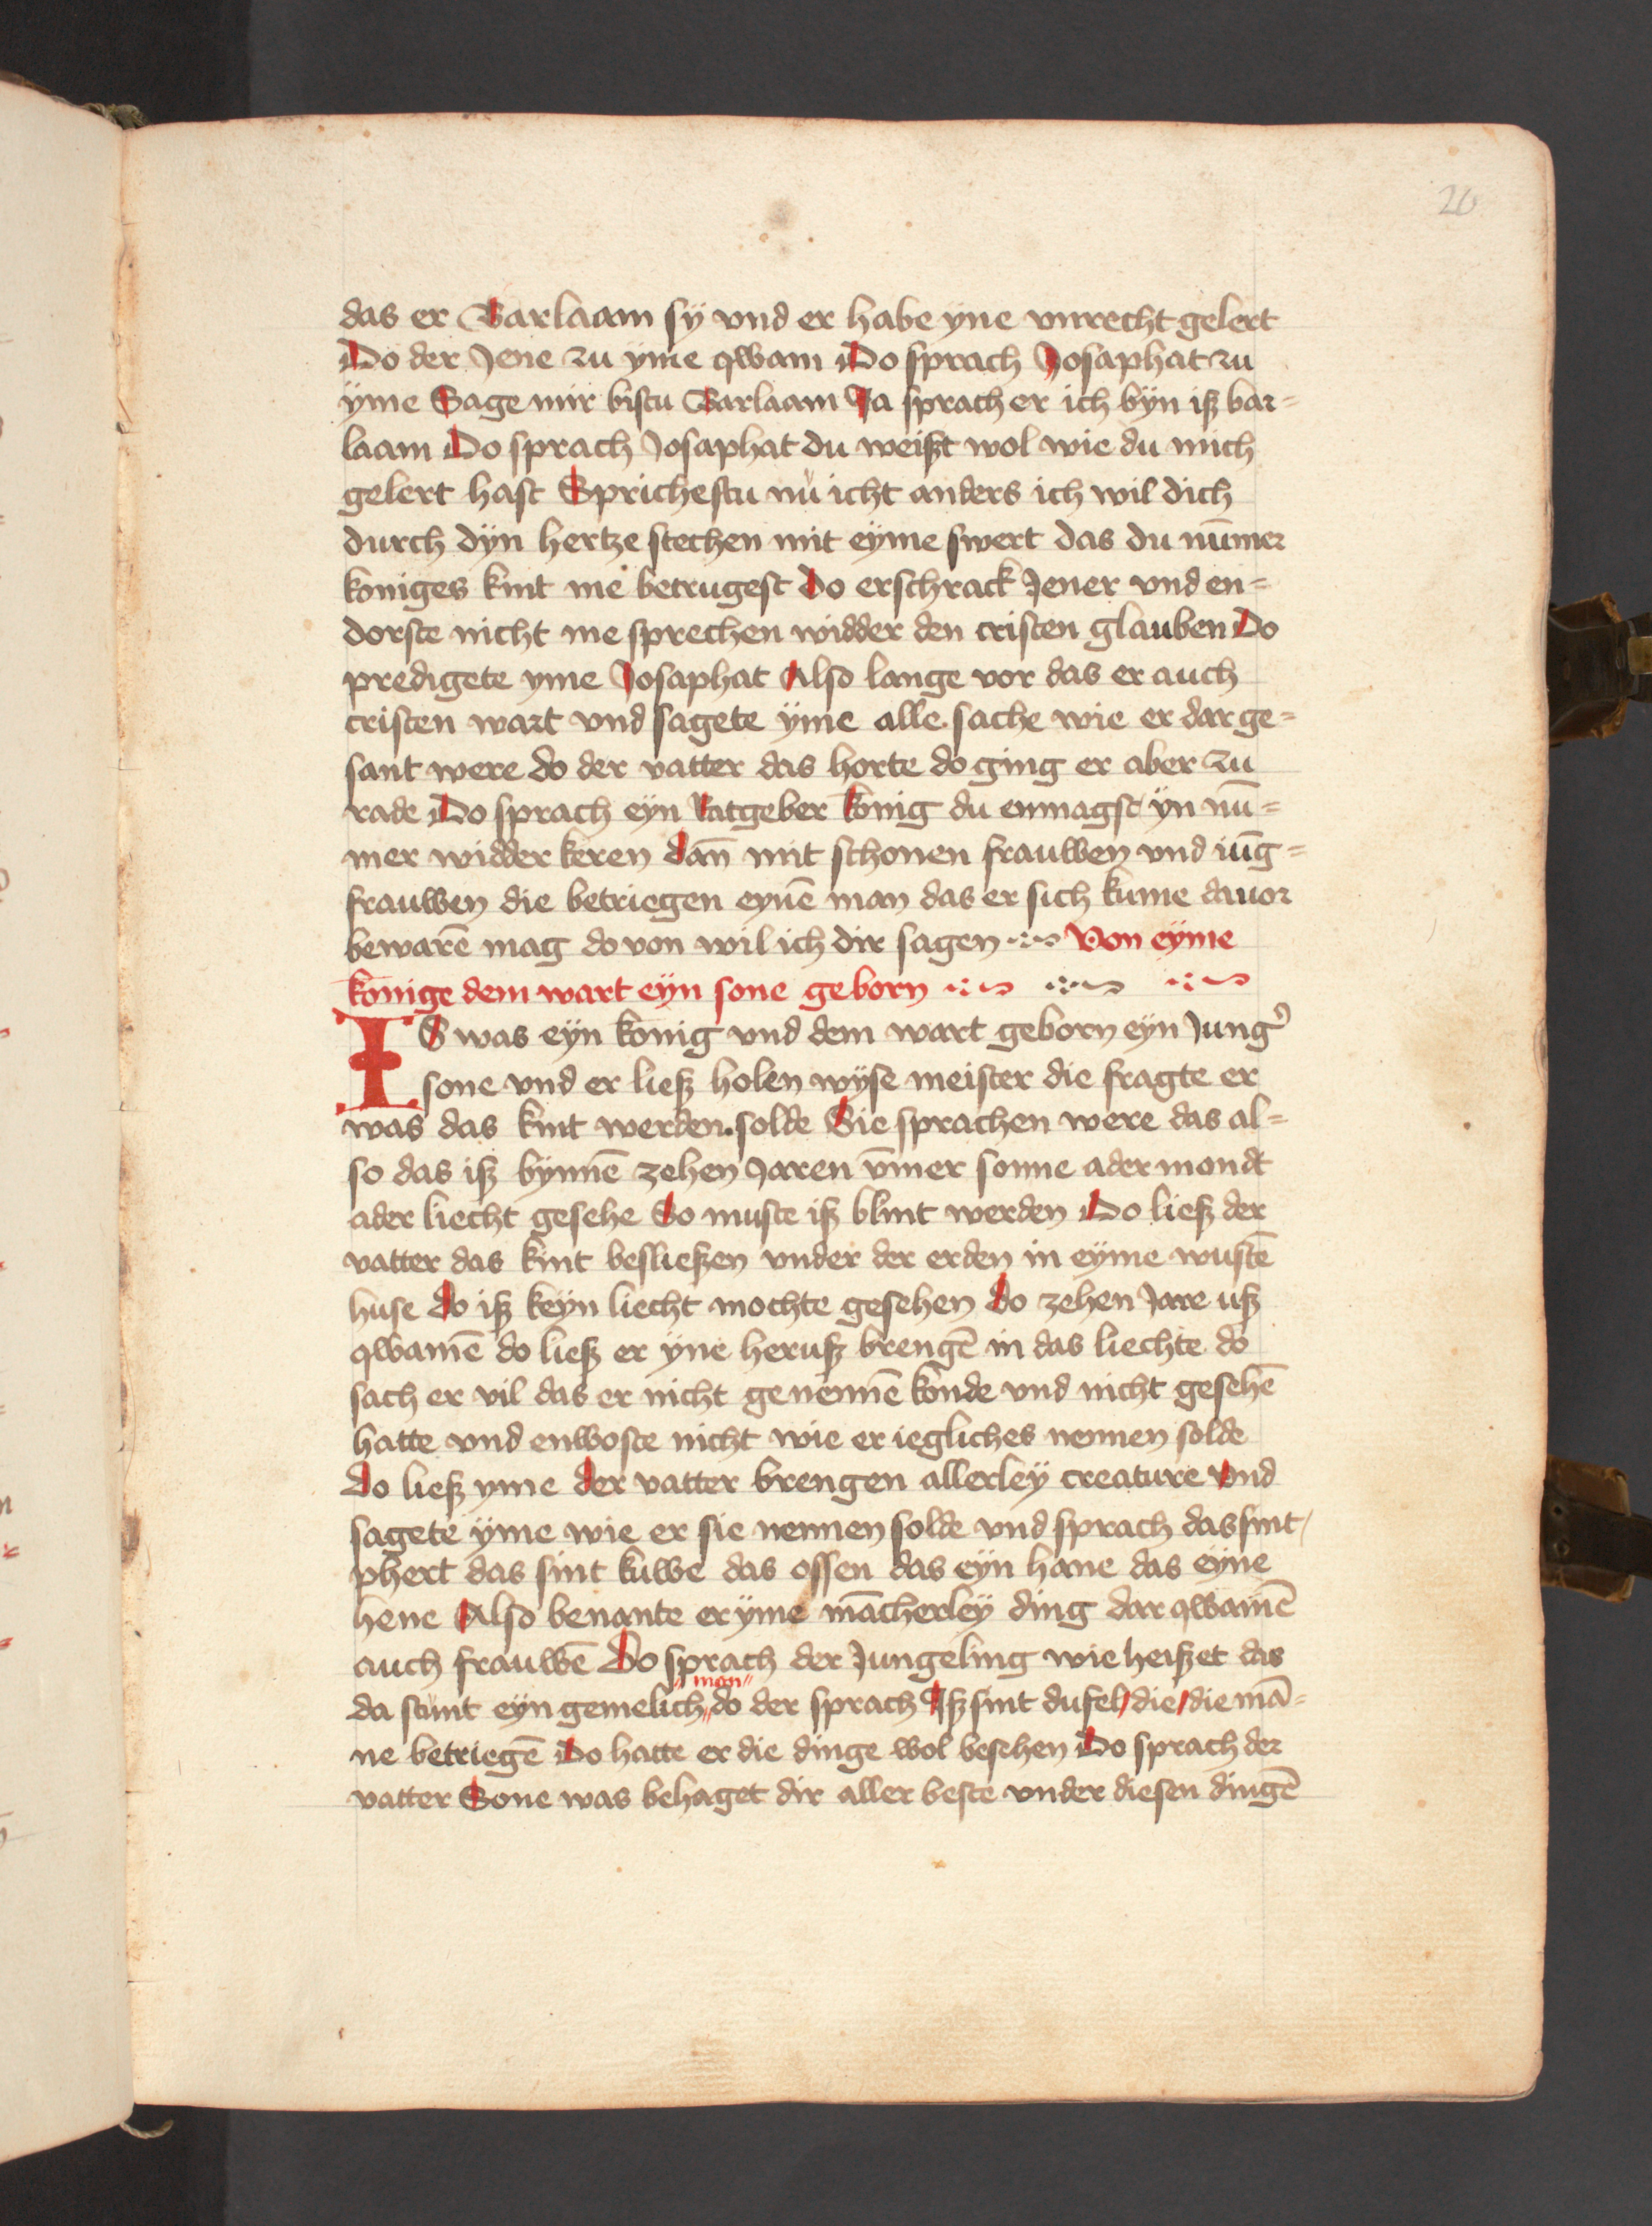 20
das er Barlaam sÿ vnd er habe yne vnrecht gelert
Do der Jene zu ÿme qwam Do sprach Josaphat zu
ÿme Sage mir bistu Barlaam Ja sprach er ich bÿn iß bar=
laam Do sprach Josaphat du weißt wol wie du mich
gelert hast Sprichestu nü icht anders ich wil dich
durch dÿn hertze stechen mit eÿme swert das du nūmer
koniges kint me betrugest Do erschrack Jener vnd en=
dorste nicht me sprechen widder den cristen glauben Do
predigete yme Josaphat Also lange vor das er auch
cristen wart vnd sagete ÿme alle sache wie er dar ge=
sant were do der vatter das horte do ging er aber zu
rade Do sprach eÿn Ratgeber konig du enmagst ÿn nū=
mer widder keren dañ mit schonen frauwen vnd iūg=
frauwen die betriegen eynē man das er sich kume dauor
bewarē mag do von wil ich dir sagen Von eÿme
konige dem wart eÿn sone geborn
IS was eÿn konig vnd dem wart geborn eÿn Jung᾽
sone vnd er ließ holen wÿse meister die fragte er
was das kint werden solde Sie sprachen were das al=
so das iß bÿnnē zehen Jaren ūmer sonne ader mondt
ader liecht gesehe So muste iß blint werden Do ließ der
vatter das kint besließen vnder der erden in eÿme wustē
huse do iß keÿn liecht mochte gesehen do zehen Jare uß
qwamē do ließ er ÿne heruß brengē in das liechte do
sach er vil das er nicht genennē konde vnd nicht gesehē
hatte vnd enwoste nicht wie er iegliches nennen solde
do ließ yme der vatter brengen allerleÿ creature vnd
sagete ÿme wie er sie nennen solde vnd sprach das sint
phert das sint kuwe das ossen das eÿn hane das eÿne
hene Also benante er ÿme mācherleÿ ding dar qwamē
auch frauwē Do sprach der Jungeling wie heißet das
man
da stunt eÿn gemelich do der sprach Iß sint dufel die die mā=
ne betriegē Do hatte er die dinge wol besehen Do sprach der
vatter Sone was behaget dir aller beste vnder diesen dingē